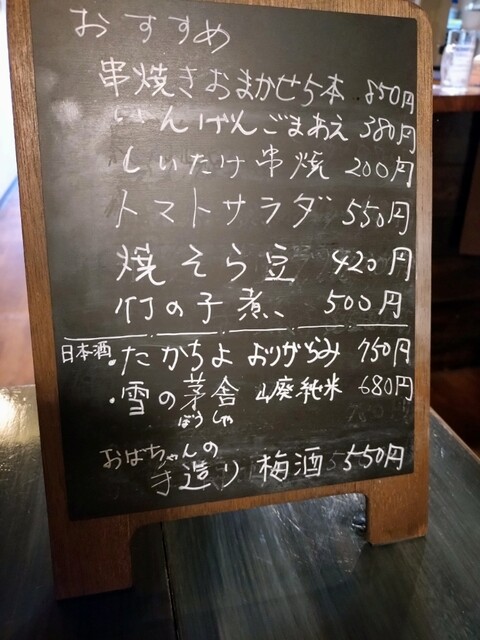 おすすめ
串焼きおまかせ5本 850円
いんげんごまあえ 380円
しいたけ串焼 200円
トマトサラダ 550円
焼そら豆 420円
竹の子煮 500円
日本酒 ・たかちよ よりがらみ 750円
・雪の茅舎 山廃純米 680円
ぼうしゃ
おばちゃんの
手造り 梅酒 550円